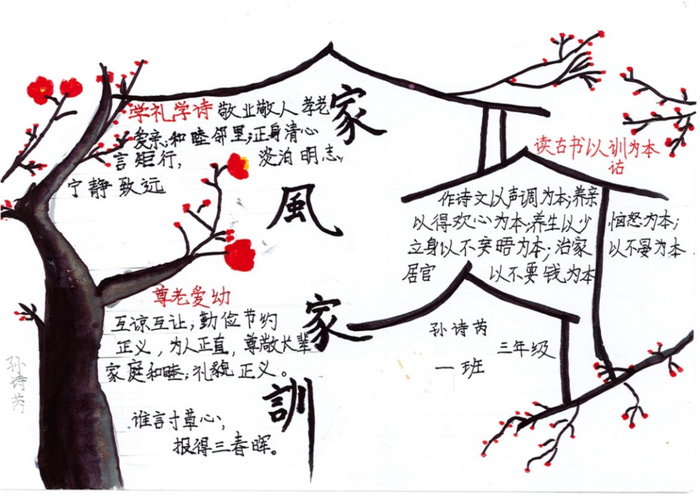 家風家訓
学礼学诗 敬业敬人 孝老
爱亲,和睦邻里;正身清心
言矩行, 淡泊明志,
宁静致远
尊老爱幼
互谅互让,勤俭节约
正义,为人正直,尊敬长辈
家庭和睦;礼貌正义。
谁言寸草心,
报得三春晖。
读古书以训为本
诂
作诗文以声调为本;养亲
以得欢心为本;养生以少 恼怒为本;
立身以不妄晤为本;治家 以不晏为本
居官 以不要钱为本
孙诗芮 三年级
一班
孙诗芮